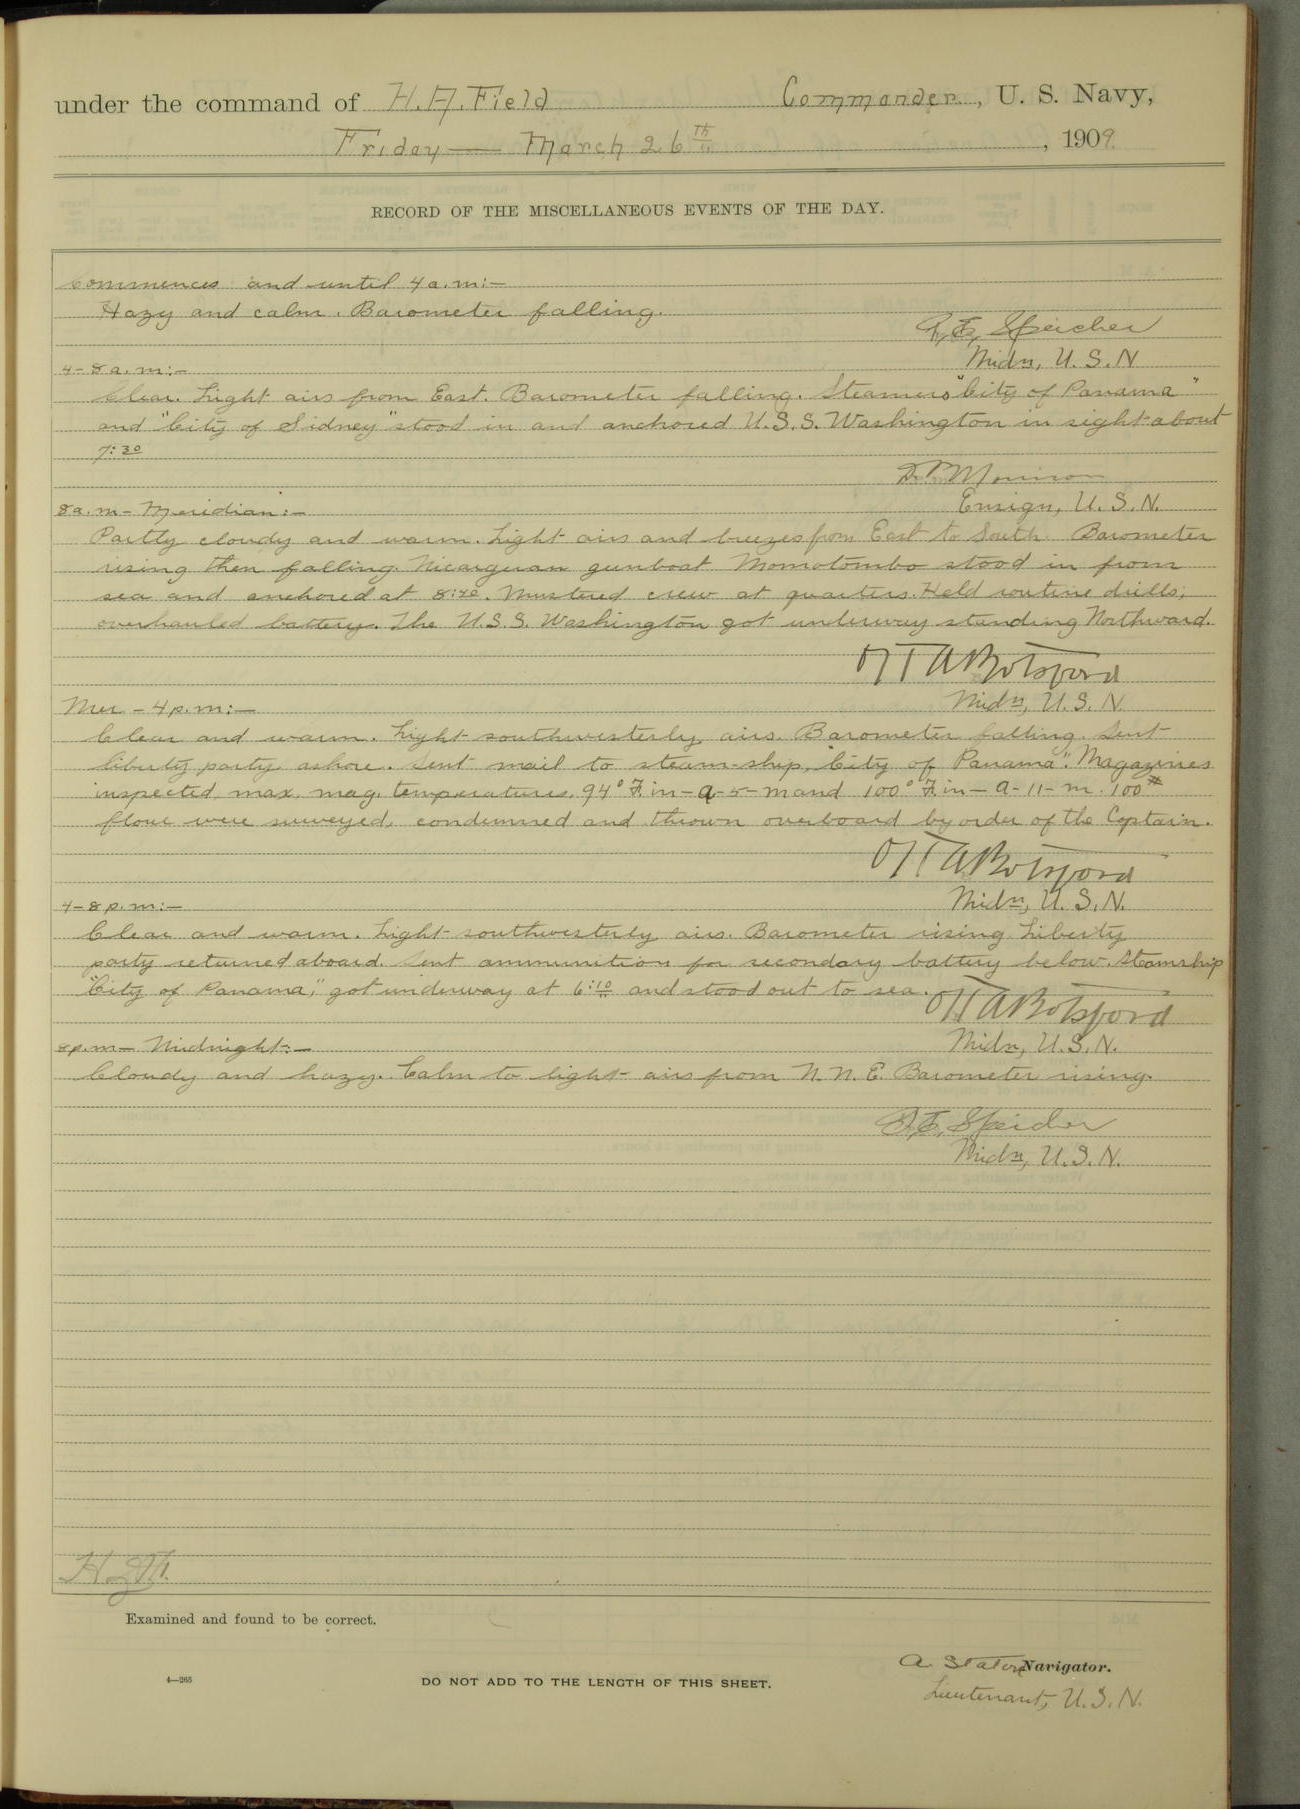 under the command of H. A. Field Commander, U. S. Navy,
Friday — March 26th, 1909.
RECORD OF THE MISCELLANEOUS EVENTS OF THE DAY.
Commences and until 4 a.m:—
Hazy and calm. Barometer falling.
Speicher
Midn, U.S.N
4-8 a.m:—
Clear. Light airs from East. Barometer falling. Steamers "City of Panama"
and "City of Sidney" stood in and anchored U.S.S. Washington in sight about
7:30
Ensign, U.S.N.
8 a.m - Meridian:—
Partly cloudy and warm. Light airs and breezes from East to South. Barometer
rising then falling. Nicarguan gunboat Momotombo stood in from
sea and anchored at 8:40. Mustered crew at quarters. Held routine drills;
overhauled battery. The U.S.S. Washington got underway standing Northward.
Botsford
Midn, U.S.N.
Mer - 4 p.m:—
Clear and warm. Light southwesterly airs. Barometer falling. Sent
liberty party ashore. Sent mail to steam-ship, "City of Panama". Magazines
inspected, max. mag. temperatures, 94° F. in - A-5-M and 100° F. in - A-11-M. 100#
flour were surveyed, condemned and thrown overboard by order of the Captain.
Botsford
Midn, U.S.N.
4-8 p.m:—
Clear and warm. Light southwesterly airs. Barometer rising. Liberty
party returned aboard. Sent ammunition for secondary battery below. Steamship
"City of Panama", got underway at 6:10 and stood out to sea.
Botsford
Midn, U.S.N.
8 p.m - Midnight:—
Cloudy and hazy. Calm to light airs from N.N.E. Barometer rising.
Speicher
Midn, U.S.N.
Examined and found to be correct.
A. Staton Navigator.
4—265
DO NOT ADD TO THE LENGTH OF THIS SHEET.
Lieutenant, U.S.N.